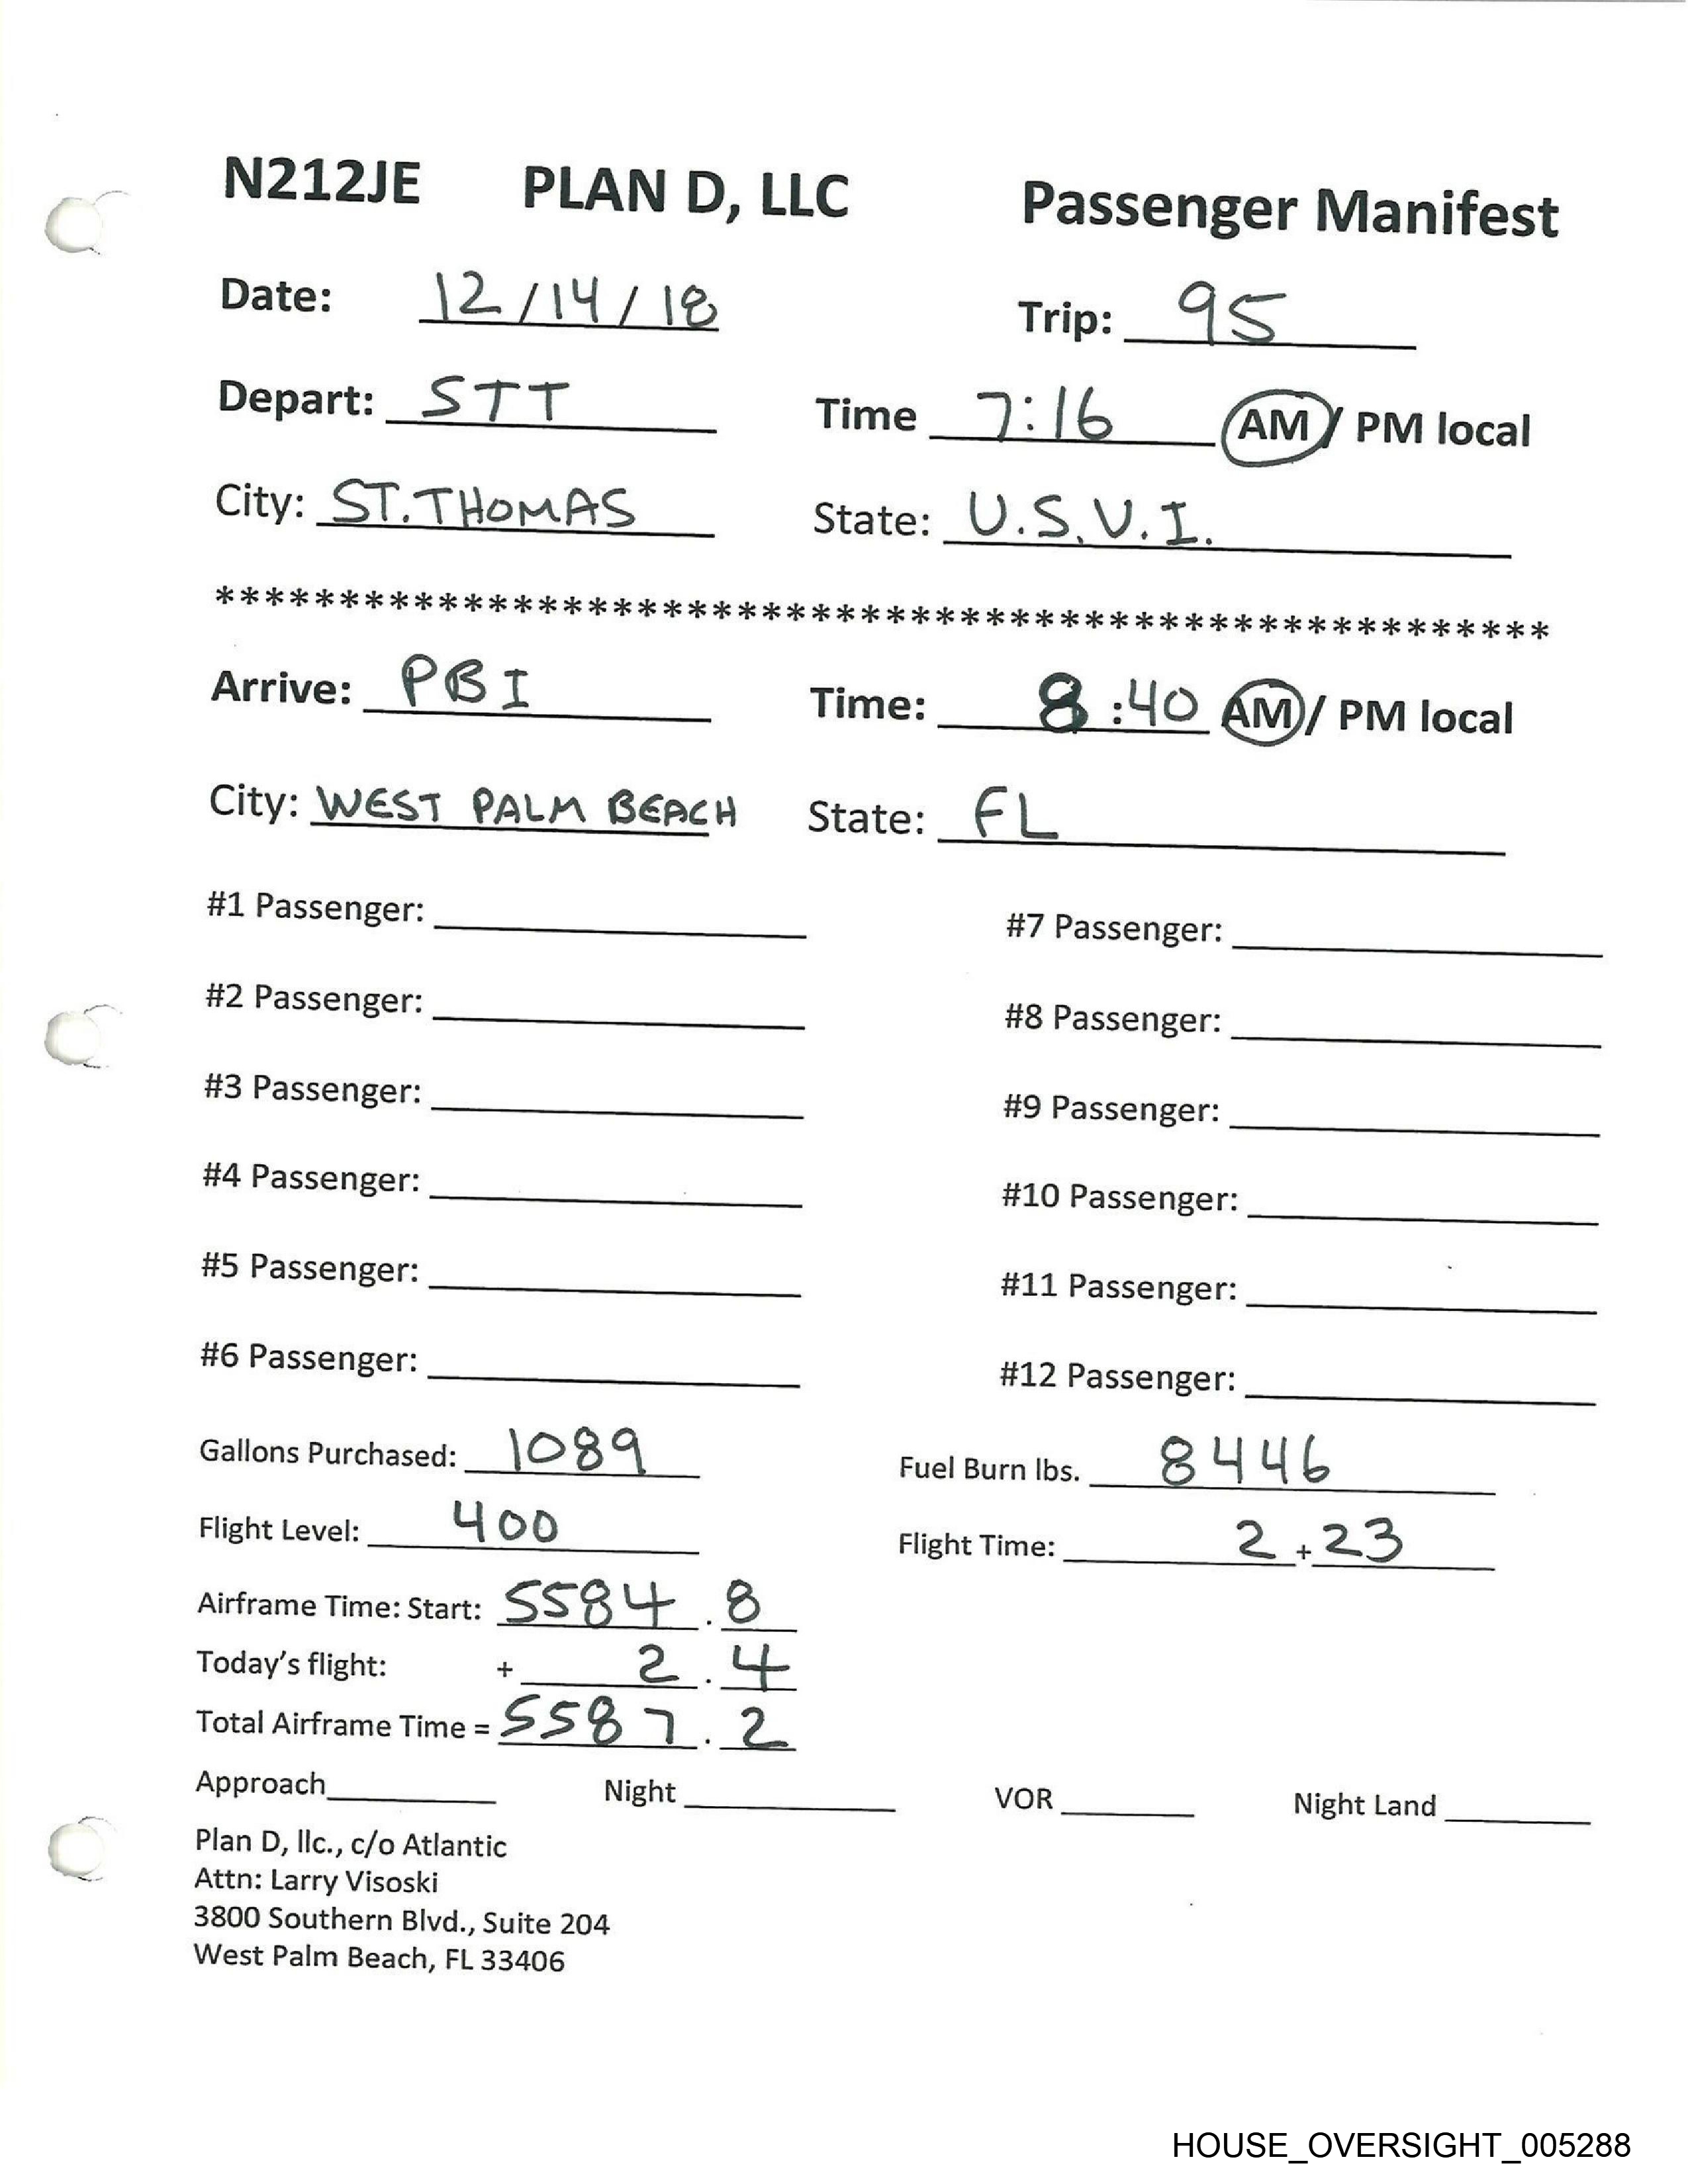 N212JE PLAN D, LLC Passenger Manifest
Date: 12/14/18 Trip: 95
Depart: STT Time 7:16 AM / PM local
City: ST. THOMAS State: U.S.V.I.
******************************************************
Arrive: PBI Time: 8:40 AM / PM local
City: WEST PALM BEACH State: FL
#1 Passenger: #7 Passenger:
#2 Passenger: #8 Passenger:
#3 Passenger: #9 Passenger:
#4 Passenger: #10 Passenger:
#5 Passenger: #11 Passenger:
#6 Passenger: #12 Passenger:
Gallons Purchased: 1089 Fuel Burn lbs. 8446
Flight Level: 400 Flight Time: 2+23
Airframe Time: Start: 5584.8
Today's flight: + 2.4
Total Airframe Time = 5587.2
Approach Night VOR Night Land
Plan D, llc., c/o Atlantic
Attn: Larry Visoski
3800 Southern Blvd., Suite 204
West Palm Beach, FL 33406
HOUSE_OVERSIGHT_005288